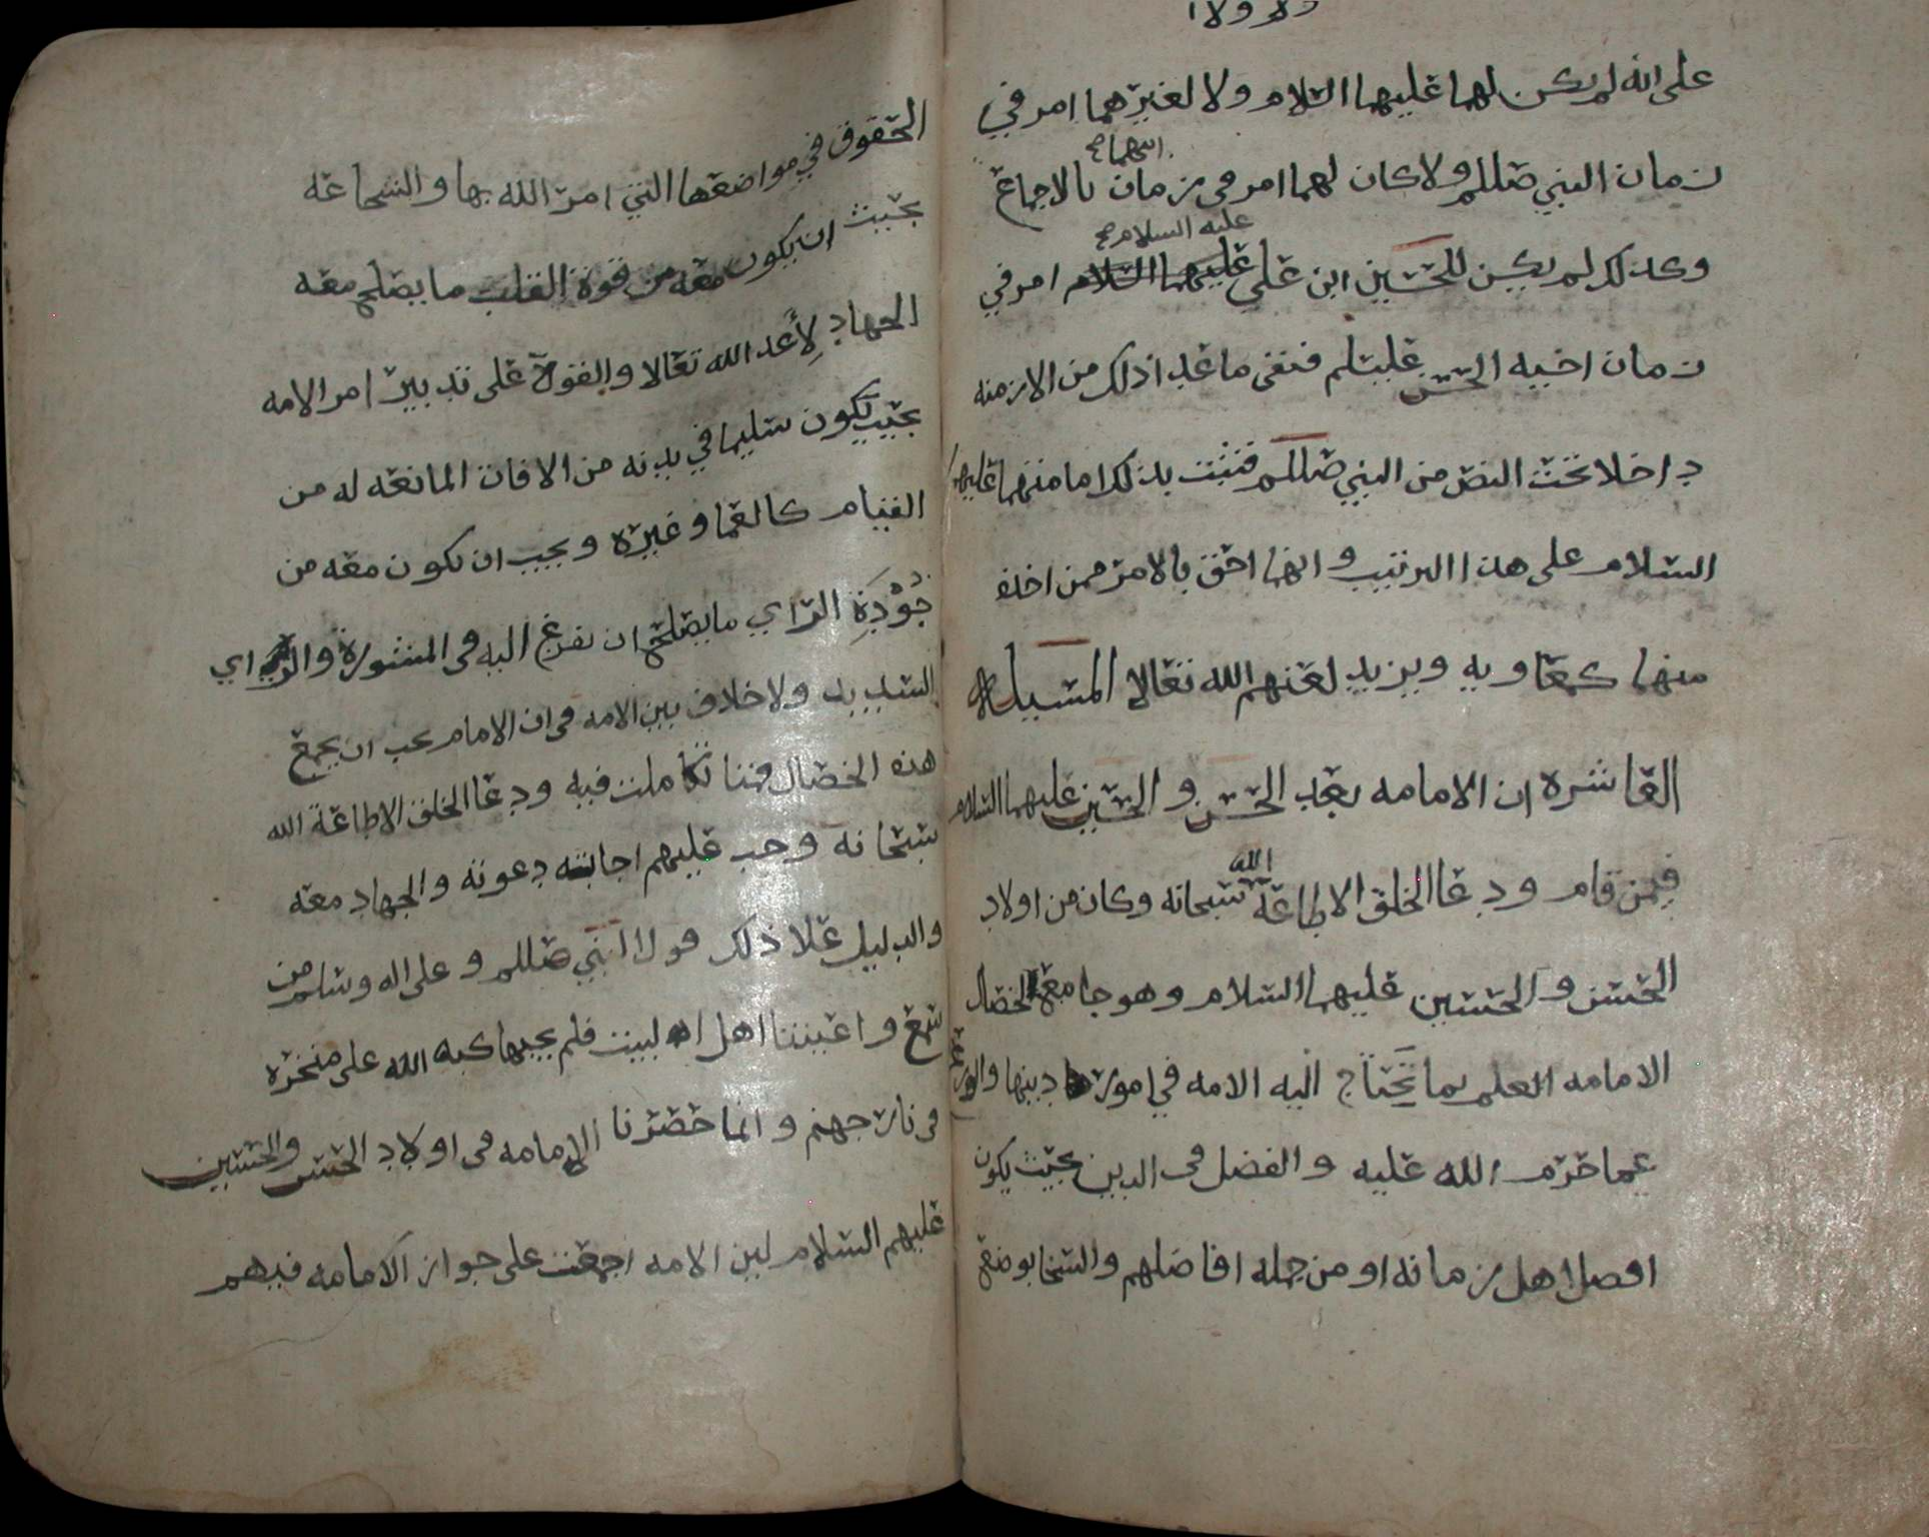 على انه لم يكن لهما عليهما السلام ولا لغيرهما امر في
زمان النبي صللم ولا كان لهما امر في زمان ابيهما صح بالاجماع
وكذلك لم يكن للحسين ابن علي عليهما السلام عليه السلام صح امر في
زمان اخيه الحسن عليسلم فبقى ما عدا ذلك من الازمنه
داخلا تحت النص من النبي صللم فثبت بذلك امامتهما عليهما
السلام على هذا الترتيب وانهما احق بالامر ممن اخذه
منهما كمعاويه ويزيد لعنهم الله تعالا المسيله
العاشرة ان الامامه بعد الحسن والحسين عليهما السلام
فيمن قام ودعا الخلق الا طاعة الله سبحانه وكان من اولاد
الحسن والحسين عليهما السلام وهو جامع لخصال
الامامه العلم بما تحتاج اليه الامه في امور دينها والورع
عما حرم الله عليه والفضل في الدين بحيث يكون
افضل اهل زمانه او من جمله افاضلهم والسخا بوضع
الحقوق في مواضعها التي امر الله بها والشجاعه
بحيث ان يكون معه من قوة القلب ما يصلح معه
الجهاد لأعد الله تعالا والقوة على تدبير امر الامه
بحيث يكون سليما في بدنه من الافات المانعه له من
القيام كالعما وغيره ويجب ان يكون معه من
جُوْدَةِ الراي ما يصلح ان يفزع اليه في المشورة والراي
السديد ولا خلاف بين الامه في ان الامام يجب ان يجمع
هذه الخصال فمتا تكاملت فيه ودعا الخلق الا طاعة الله
سبحانه وجب عليهم اجابته دعوته والجهاد معه
والدليل علا ذلك قول النبي صللم وعلى اله وسلم من
سمع واعيتنا اهل البيت فلم يجيبها كبه الله على منخره
في نار جهنم وانما حصرنا الامامه في اولاد الحسن والحسين
عليهم السلام لين الامه اجمعت على جواز الامامه فيهم